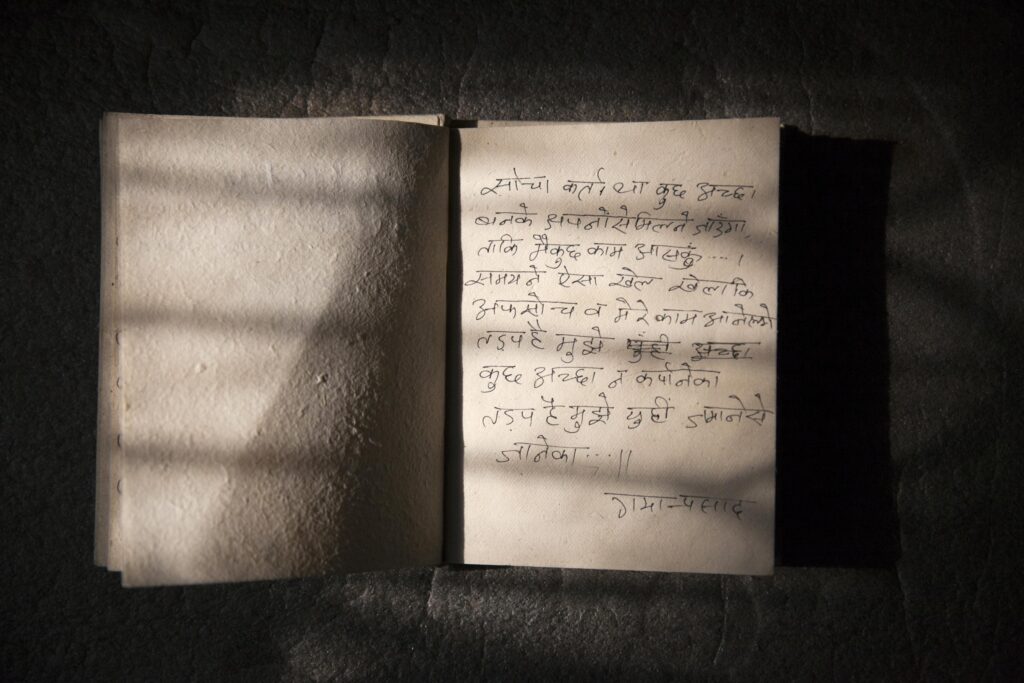 सोचा कर्ता था कुछ अच्छा
बनके अपनोसे मिलने जाउँगा,
ताकि मैकुछ काम आसकुं....।
समयने ऐसा खेल खेलाकि
अफसोच व मेरे काम आनेलगे
तड़प है मुझे युंही अच्छा
कुछ अच्छा न कर्पानेका
तड़प है मुझे युहीं जमानेसे
जानेका....॥
रामप्रसाद